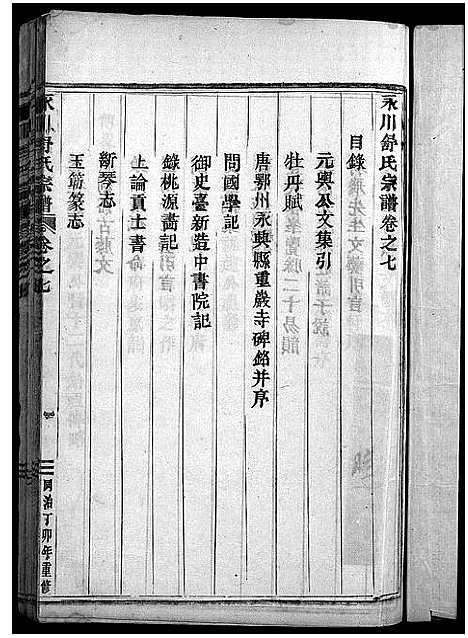 永川舒氏宗譜卷之七
目錄
元輿公文集引
牡丹賦
唐鄂州永興縣重巖寺碑銘并序
問國學記
御史臺新造中書院記
錄桃源畵記
上論貢士書
斲琴志
玉筯篆志
永川舒氏宗譜
卷之七
同治丁卯年重修